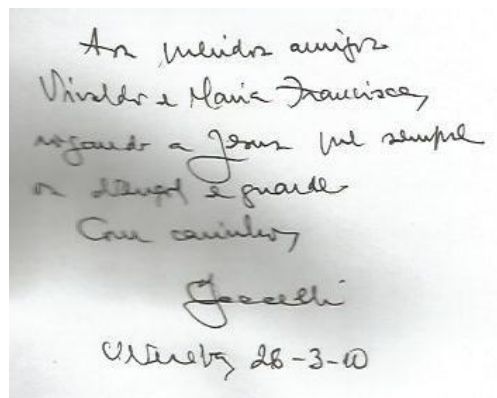 Aos queridos amigos
Vivaldo e Maria Francisca,
rogando a Jesus que sempre
os abençoe e guarde
Com carinho,
26-3-10